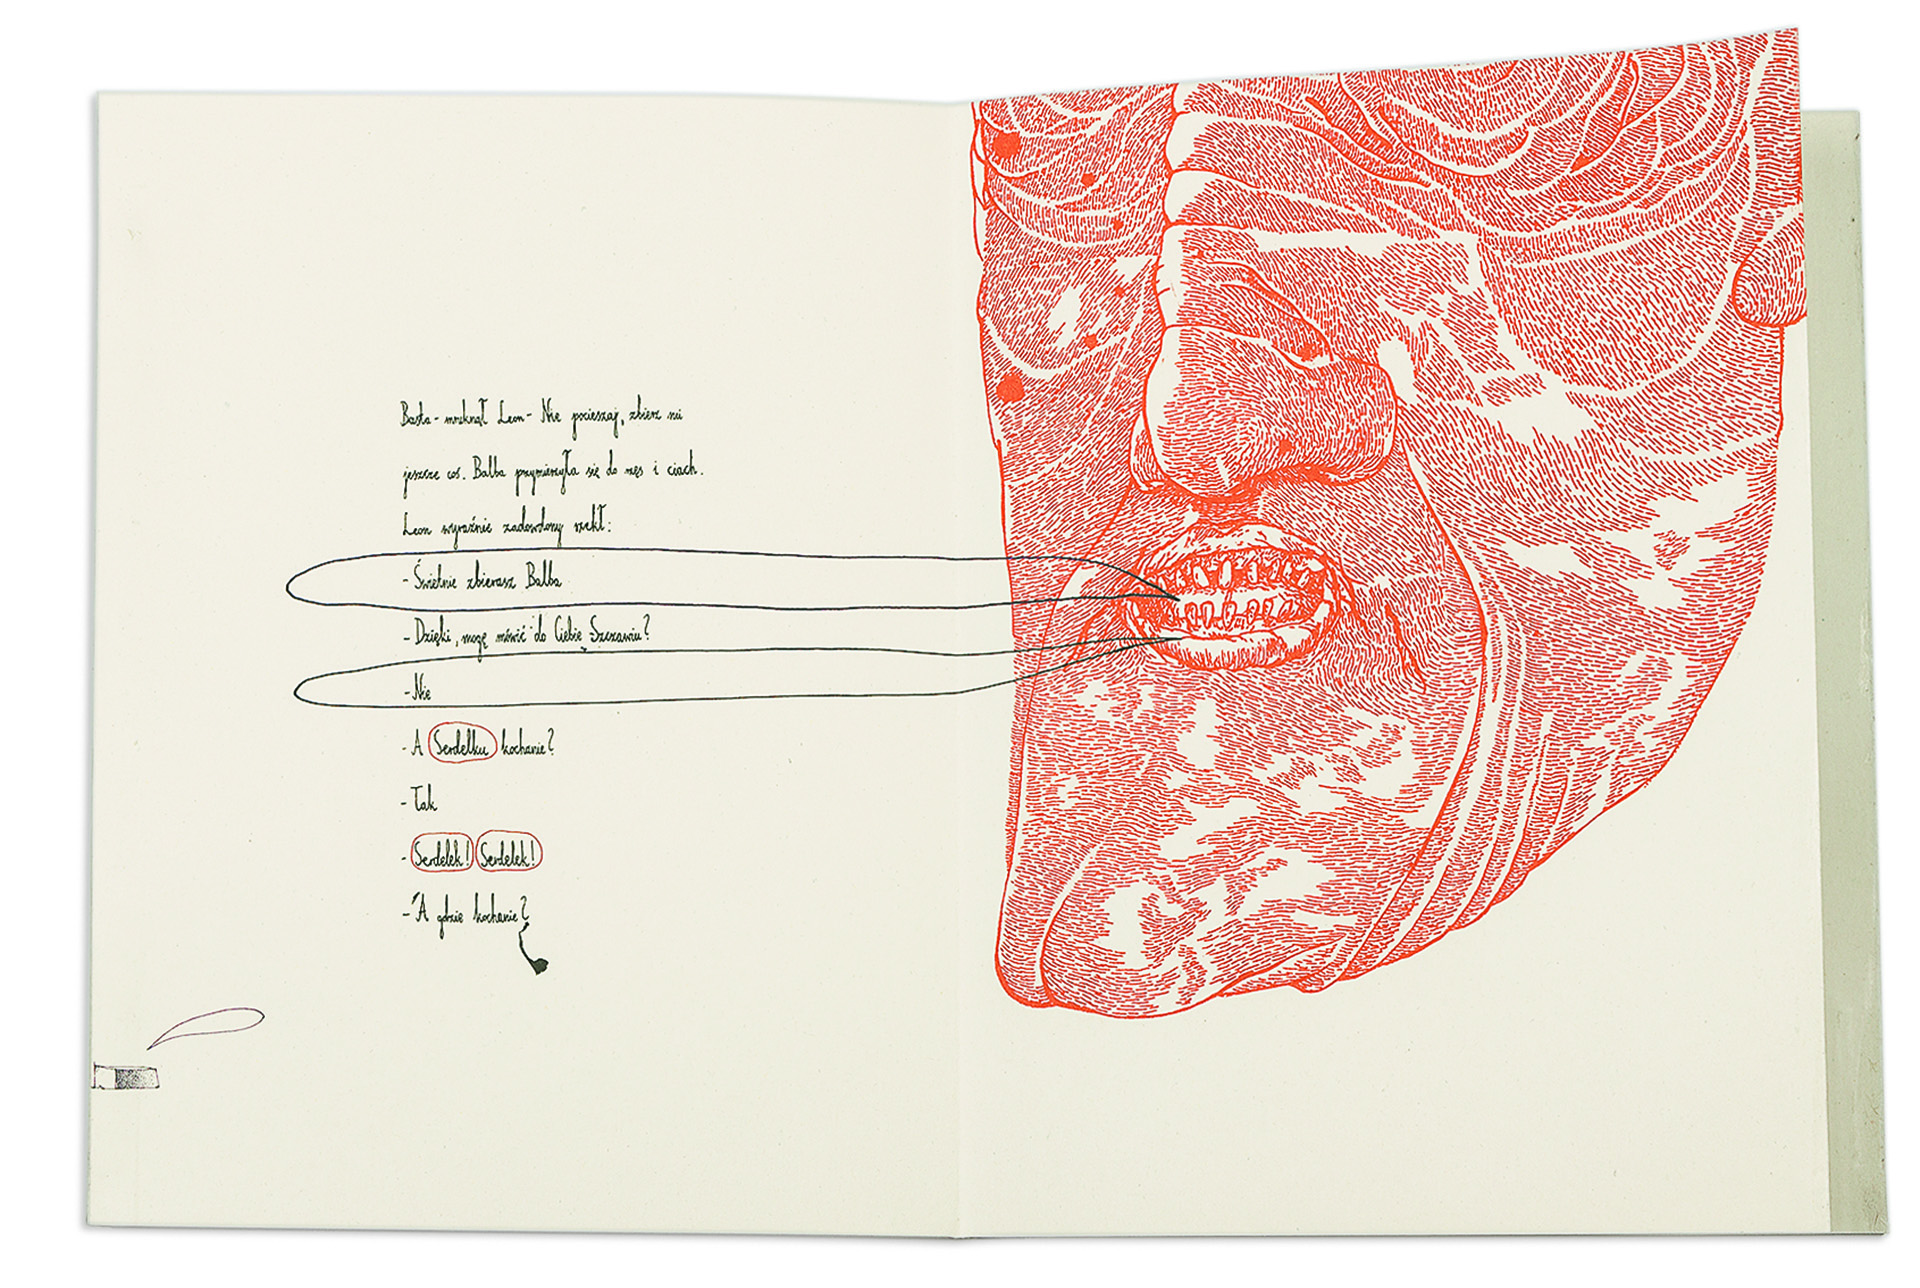 Basta - mruknął Leon - Nie pocieszaj, zbierz mi
jeszcze coś. Balba przymierzyła się do rzęs i ciach.
Leon wyraźnie zadowolony rzekł:
- Świetnie zbierasz Balba
- Dzięki, mogę mówić do Ciebie Szczawiu?
- Nie
- A Serdelku kochanie?
- Tak
- Serdelek! Serdelek!
- A gdzie kochanie?